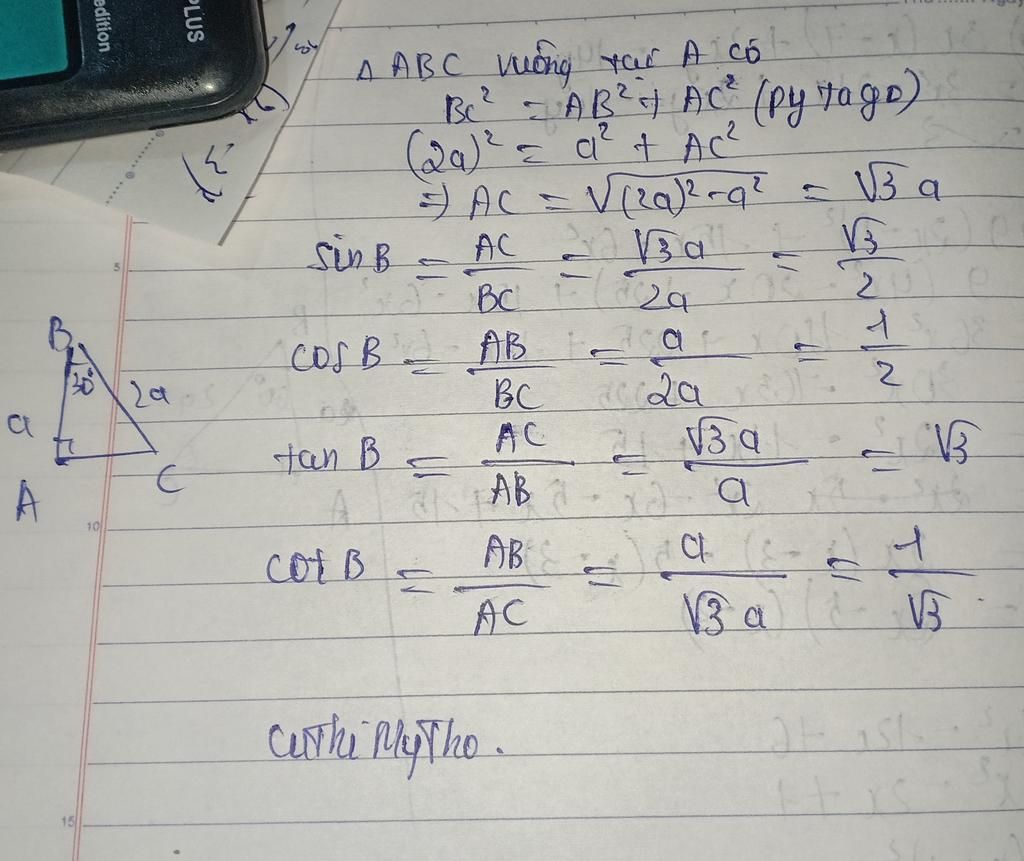 PLUS
edition
Δ ABC vuông tại A có
BC² = AB² + AC² (pytago)
(2a)² = a² + AC²
=> AC = √(2a)² - a² = √3 a
sin B = AC/BC = √3 a/2a = √3/2
cos B = AB/BC = a/2a = 1/2
tan B = AC/AB = √3 a/a = √3
cot B = AB/AC = a/√3 a = 1/√3
B
30°
2a
a
A
C
5
10
15